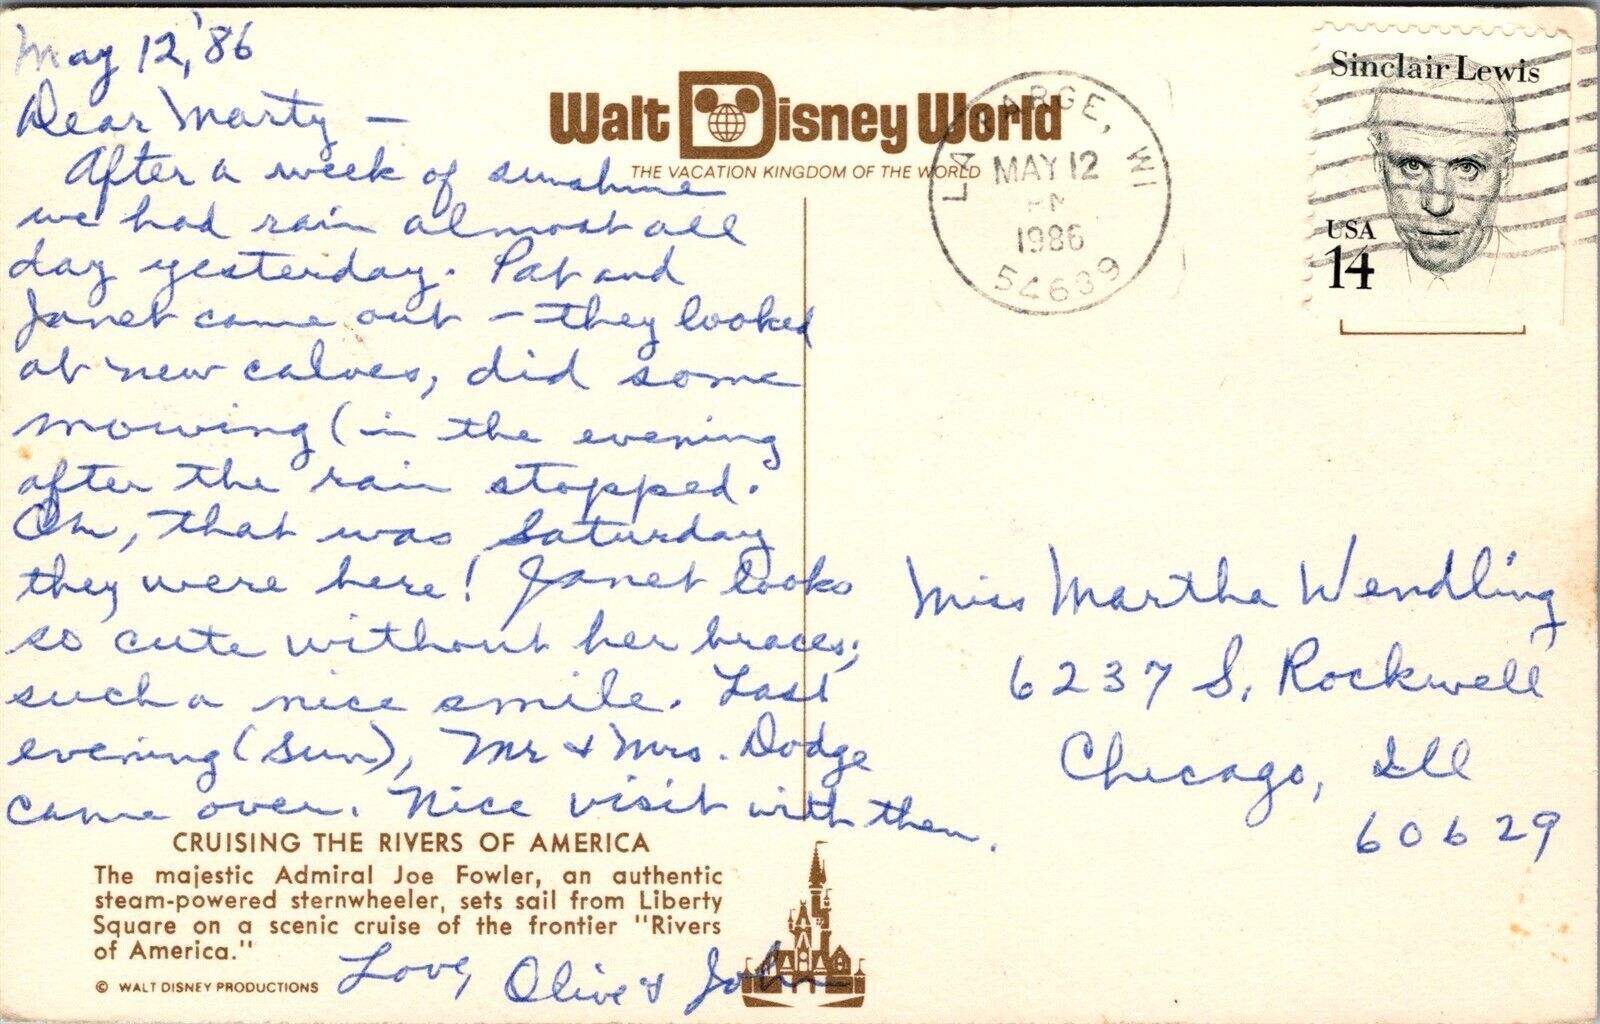 May 12, '86
Dear Marty —
After a week of sunshine
we had rain almost all
day yesterday. Pat and
Janet came out — they looked
at new calves, did some
mowing (in the evening
after the rain stopped.
Oh, that was Saturday
they were here! Janet looks
so cute without her braces;
such a nice smile. Last
evening (Sun), Mr & Mrs. Dodge
came over. Nice visit with them.
Love, Olive & John
Walt Disney World
THE VACATION KINGDOM OF THE WORLD
LA FARGE, WI
MAY 12
PM
1986
54639
Sinclair Lewis
USA
14
Miss Martha Wendling
6237 S. Rockwell
Chicago, Ill
60629
CRUISING THE RIVERS OF AMERICA
The majestic Admiral Joe Fowler, an authentic
steam-powered sternwheeler, sets sail from Liberty
Square on a scenic cruise of the frontier "Rivers
of America."
© WALT DISNEY PRODUCTIONS